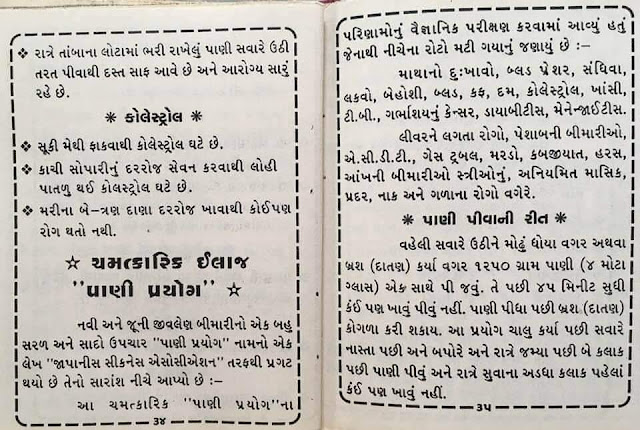 ❖ રાત્રે તાંબાના લોટામાં ભરી રાખેલું પાણી સવારે ઉઠી
તરત પીવાથી દસ્ત સાફ આવે છે અને આરોગ્ય સારું
રહે છે.
❋ કોલેસ્ટ્રોલ ❋
❖ સૂકી મેથી ફાકવાથી કોલેસ્ટ્રોલ ઘટે છે.
❖ કાચી સોપારીનું દરરોજ સેવન કરવાથી લોહી
પાતળુ થઈ કોલસ્ટ્રોલ ઘટે છે.
❖ મરીના બે-ત્રણ દાણા દરરોજ ખાવાથી કોઈપણ
રોગ થતો નથી.
☆ ચમત્કારિક ઈલાજ
"પાણી પ્રયોગ" ☆
નવી અને જૂની જીવલેણ બીમારીનો એક બહુ
સરળ અને સાદો ઉપચાર "પાણી પ્રયોગ" નામનો એક
લેખ "જાપાનીસ સીકનેસ એસોસીએશન" તરફથી પ્રગટ
થયો છે તેનો સારાંશ નીચે આપ્યો છે :-
આ ચમત્કારિક "પાણી પ્રયોગ"ના
૩૪
પરિણામોનું વૈજ્ઞાનિક પરીક્ષણ કરવામાં આવ્યું હતું
જેનાથી નીચેના રોટો મટી ગયાનું જણાયું છે :-
માથાનો દુઃખાવો, બ્લડ પ્રેશર, સંધિવા,
લકવો, બેહોશી, બ્લડ, કફ, દમ, કોલેસ્ટ્રોલ, ખાંસી,
ટી.બી., ગર્ભાશયનું કેન્સર, ડાયાબીટીસ, મેનેન્જાઈટીસ.
લીવરને લગતા રોગો, પેશાબની બીમારીઓ,
એ.સી.ડી.ટી., ગેસ ટ્રબલ, મરડો, કબજીયાત, હરસ,
આંખની બીમારીઓ સ્ત્રીઓનું, અનિયમીત માસિક,
પ્રદર, નાક અને ગળાના રોગો વગેરે.
❋ પાણી પીવાની રીત ❋
વહેલી સવારે ઉઠીને મોઢું ધોયા વગર અથવા
બ્રશ (દાતણ) કર્યા વગર ૧૨૫૦ ગ્રામ પાણી (૪ મોટા
ગ્લાસ) એક સાથે પી જવું. તે પછી ૪૫ મિનીટ સુધી
કંઈ પણ ખાવું પીવું નહીં. પાણી પીધા પછી બ્રશ (દાતણ)
કોગળા કરી શકાય. આ પ્રયોગ ચાલુ કર્યા પછી સવારે
નાસ્તા પછી અને બપોરે અને રાત્રે જમ્યા પછી બે કલાક
પછી પાણી પીવું અને રાત્રે સુવાના અડધા કલાક પહેલાં
કંઈ પણ ખાવું નહીં.
૩૫